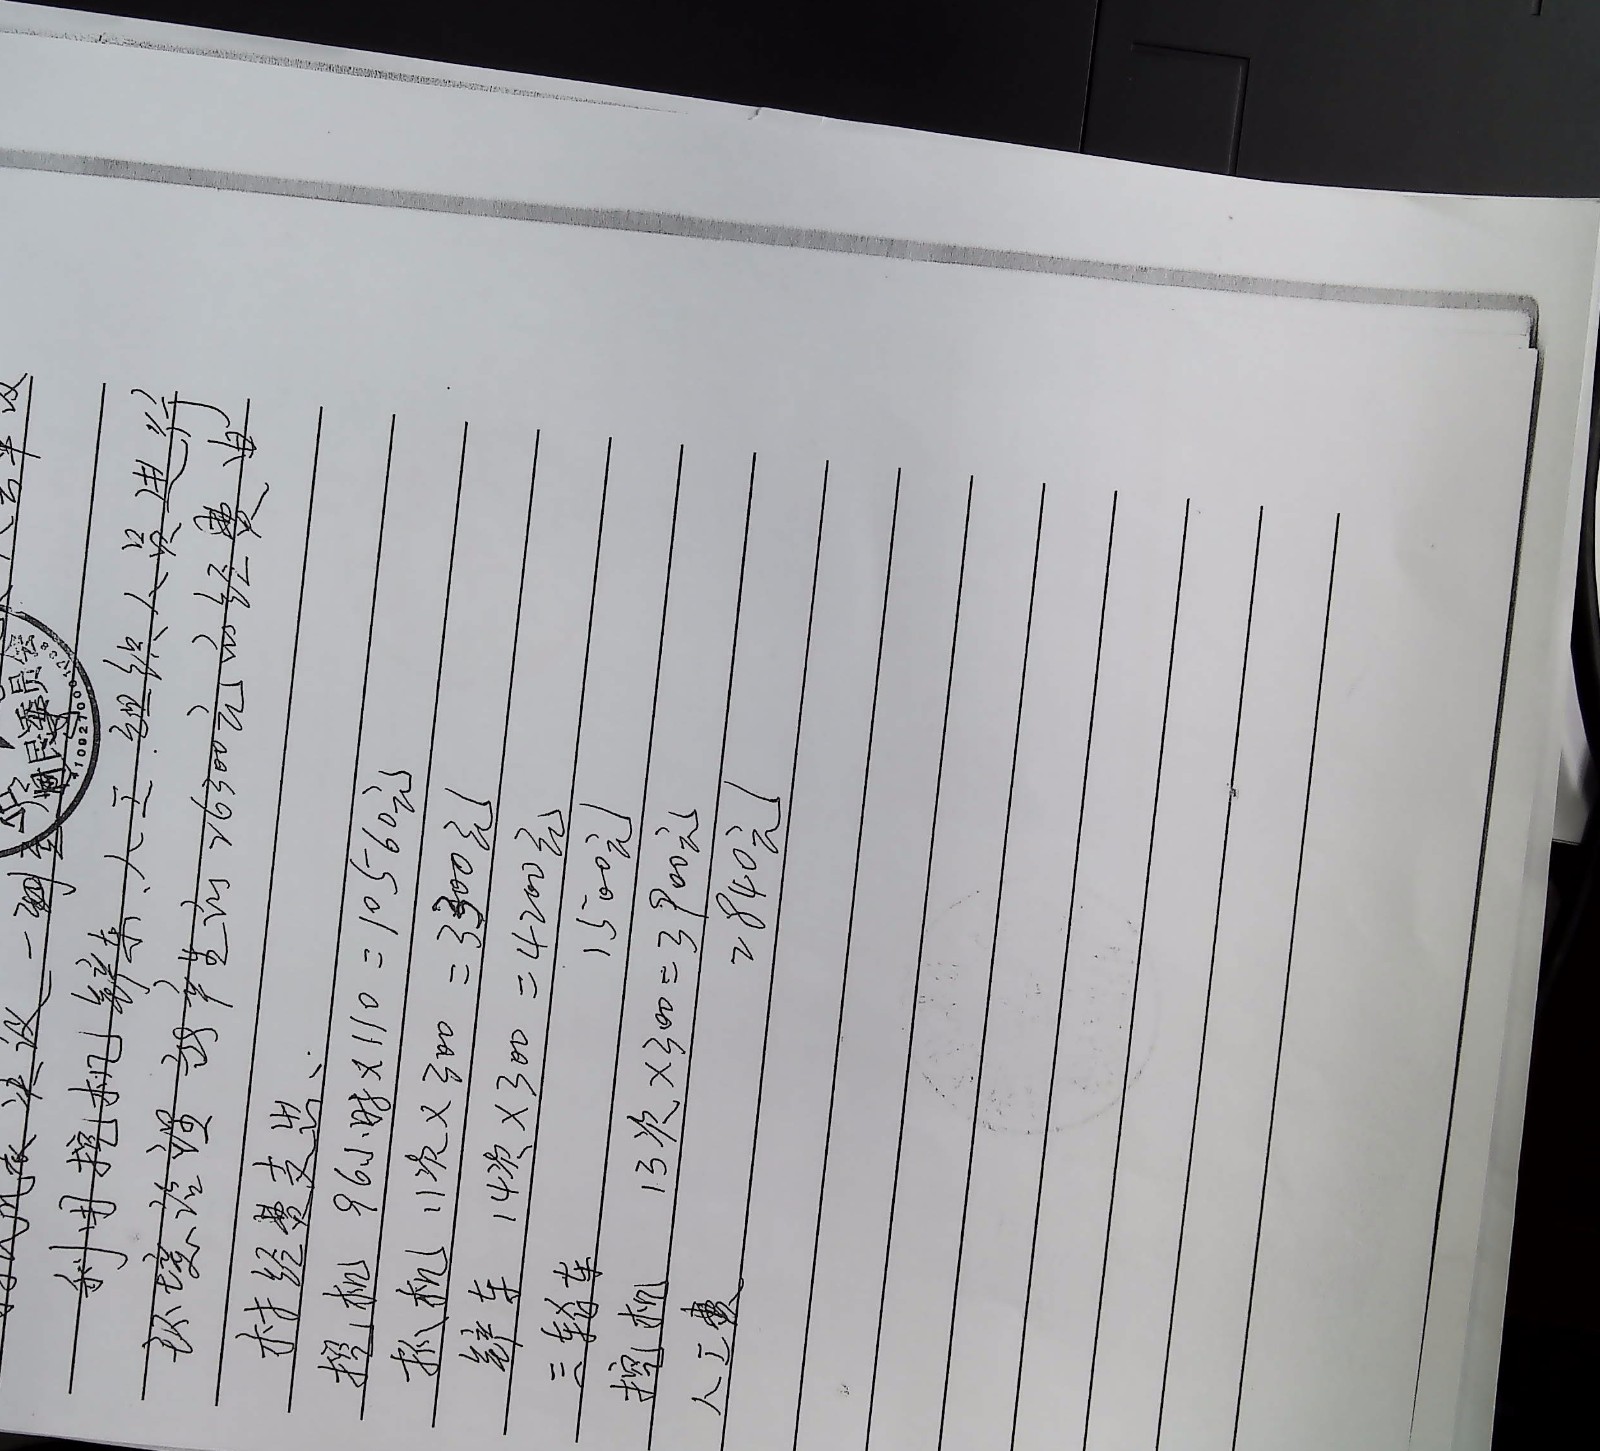 决议一
利用挖机、轿车、人工.组织人员进行
环境治理 所产生的26300元的经费由
村经费支出、
挖机 96小时×110=10560元
抓机 11次×300=3300元
轿车 14次×300=4200元
三轮车 1500元
挖机 13次×300=3900元
人工费 2840元
村民委员会